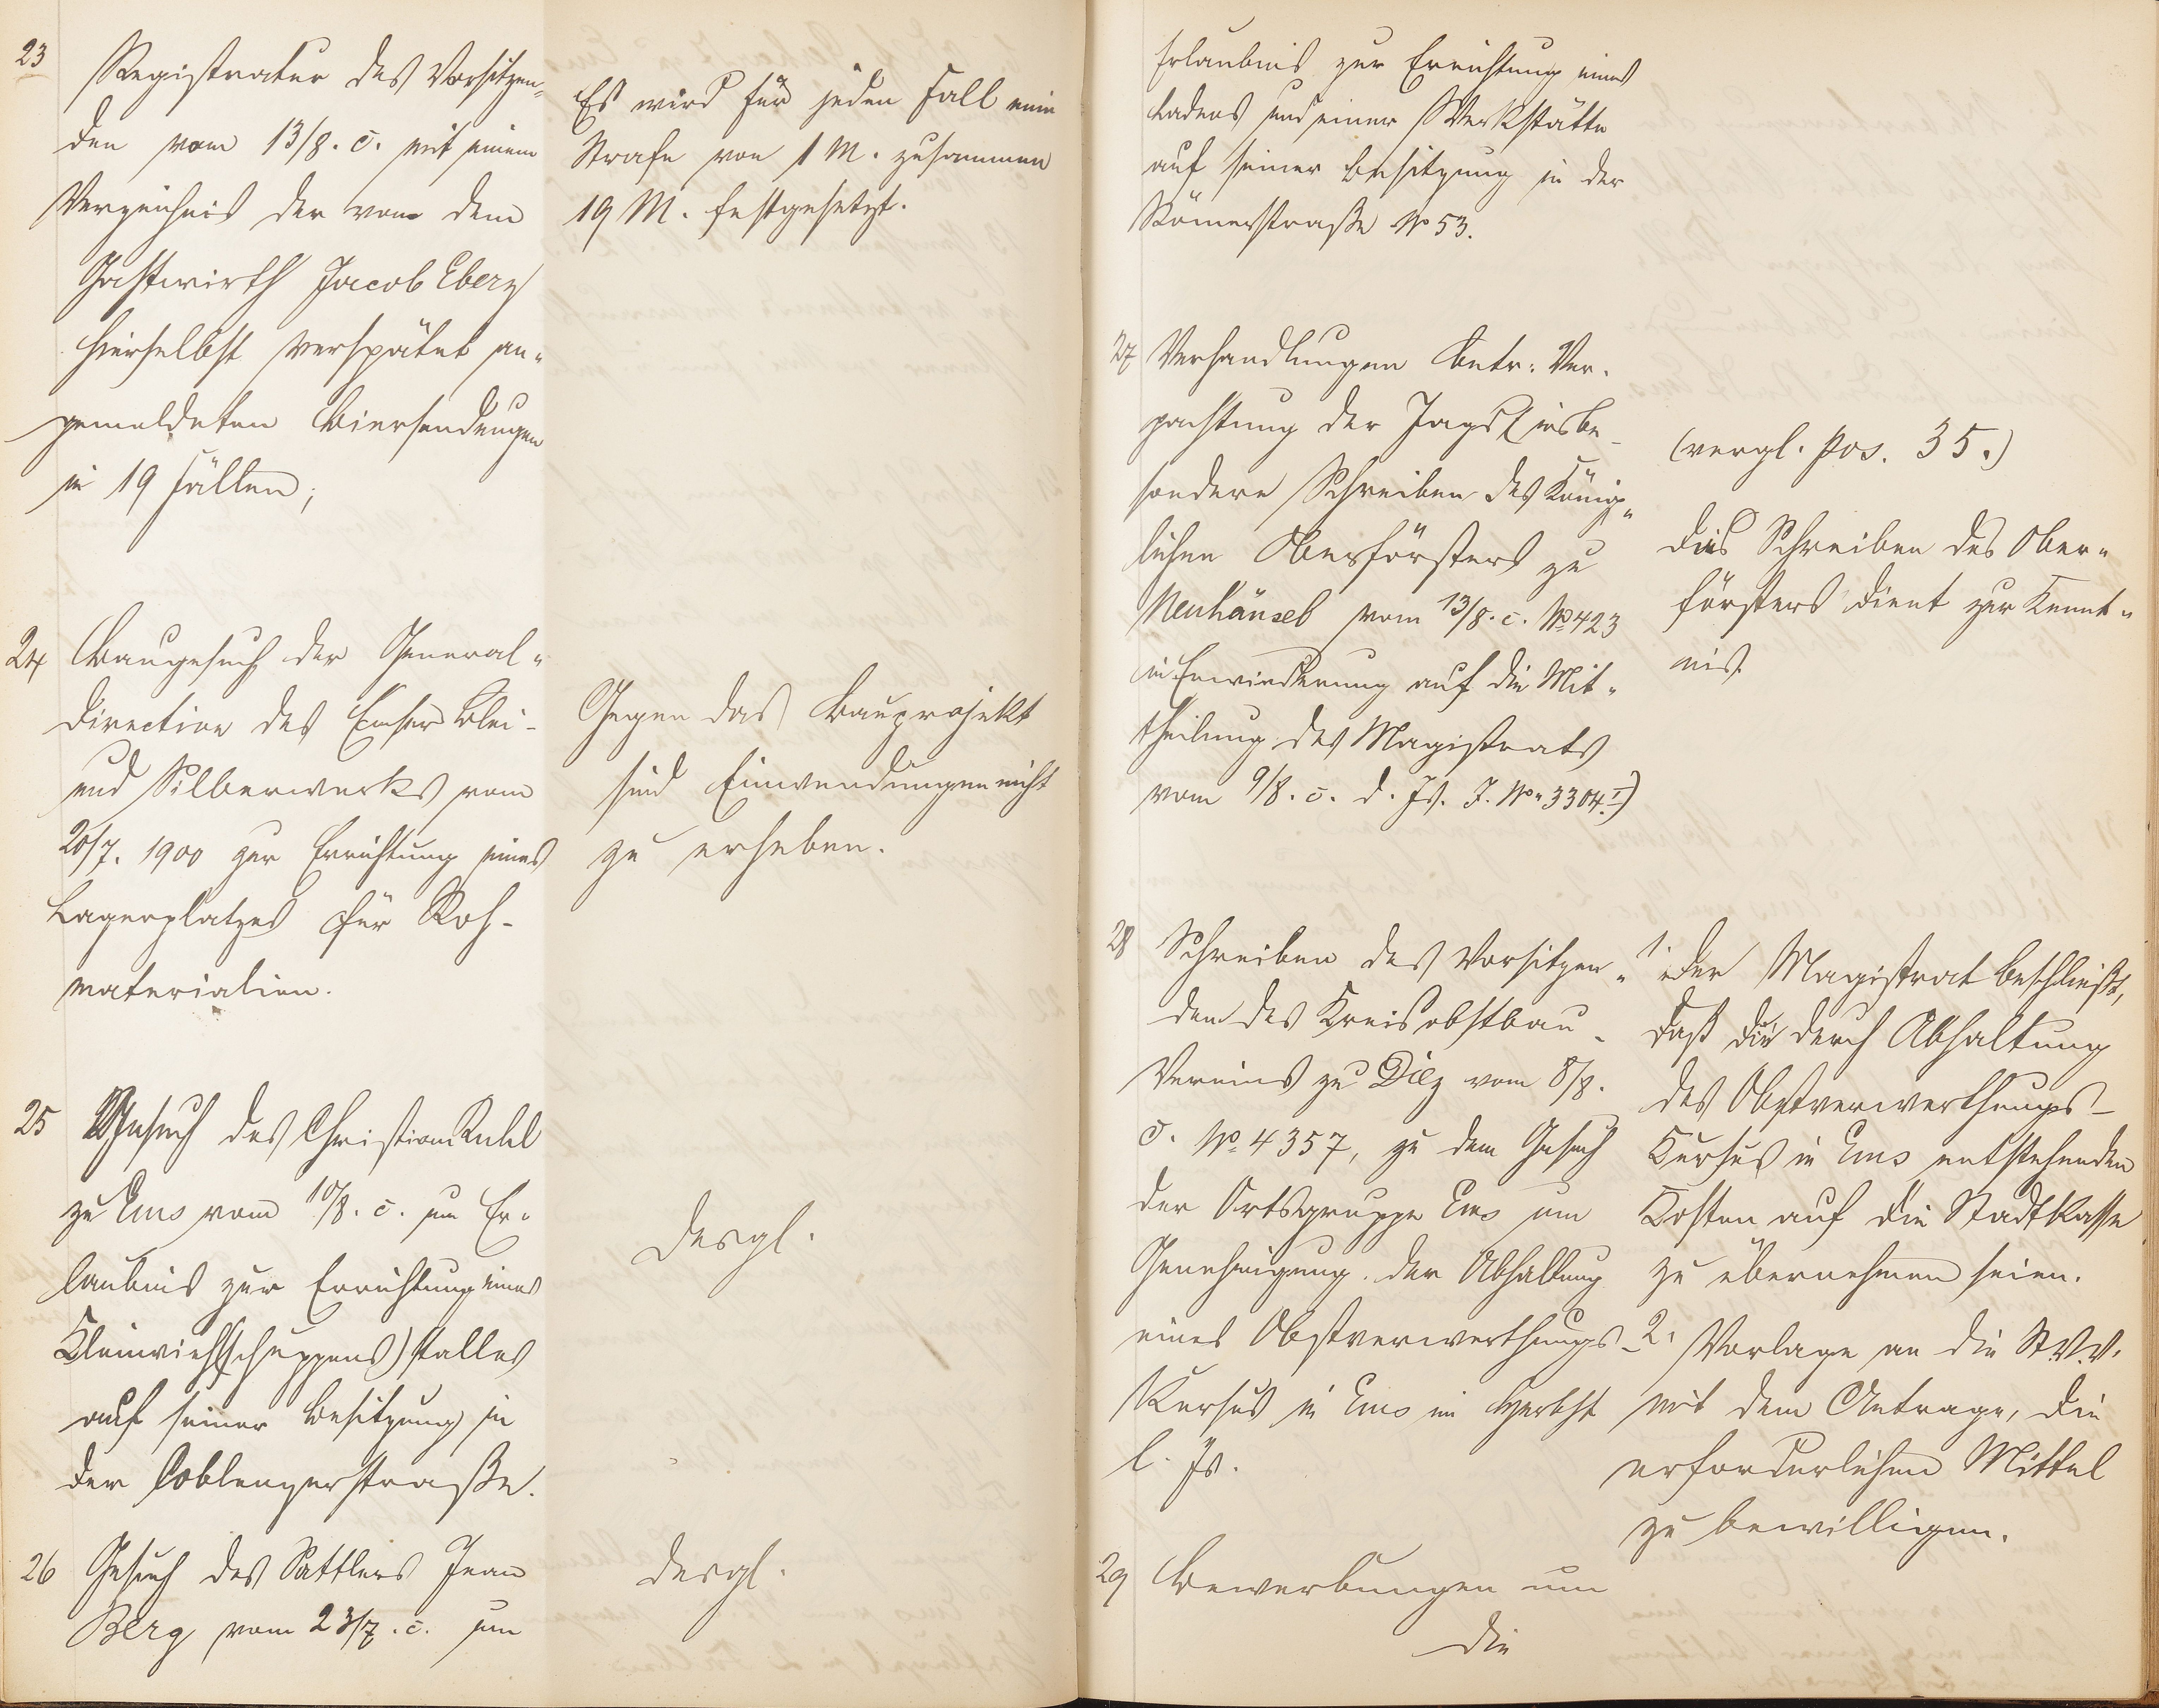 23
Registratur des Vorsitzen-
den vom 13/8. c. mit einem
Verzeichnis der von dem
Gastwirth Jacob Ebery
hierselbst verspätet an-
gemeldeten Biersendungen
in 19 Fällen;
Es wird für jeden Fall eine
Strafe von 1 M. zusammen
19 M. festgesetzt.
24 Baugesuch der General-
direction des Emser Blei-
und Silberwerks vom
20/7. 1900 zur Errichtung eines
Lagerplatzes für Roh-
materialien.
Gegen das Bauprojekt
sind Einwendungen nicht
zu erheben.
25 Gesuch des Christian Ruhl
zu Ems vom 10/8. c. um Er-
laubnis zur Errichtung eines
Kleinvieh(schuppens)stalles
auf seiner Besitzung in
der Coblenzerstraße.
desgl.
26 Gesuch des Sattlers Jean
Berg vom 23/7. c. um
desgl.
Erlaubnis zur Errichtung eines
Ladens und einer Werkstätte
auf seiner Besitzung in der
Römerstraße No 53.
27 Verhandlungen betr. Ver-
pachtung der Jagd (insbe-
sondere Schreiben des König-
lichen Oberförsters zu
Neuhäusel vom 13/8. c. No 423
in Erwiederung auf die Mit-
theilung des Magistrats
vom 9/8. c. d. Js. J. No 3304 I)
(vergl. pos. 35.)
Das Schreiben des Ober-
försters dient zur Kennt-
nis.
28 Schreiben des Vorsitzen-
den des Kreisobstbau-
Vereins zu Diez vom 8/8.
c. No 4357, zu dem Gesuch
der Ortsgruppe Ems um
Genehmigung der Abhaltung
eines Obstverwerthungs-
Kursus in Ems im Herbst
l. Js.
1. Der Magistrat beschließt,
daß die durch Abhaltung
des Obstverwerthungs-
Kursus in Ems entstehenden
Kosten auf die Stadtkasse
zu übernehmen seien.
2. Vorlage an die St.V.V.
mit dem Antrage, die
erforderlichen Mittel
zu bewilligen.
29 Bewerbungen um
die